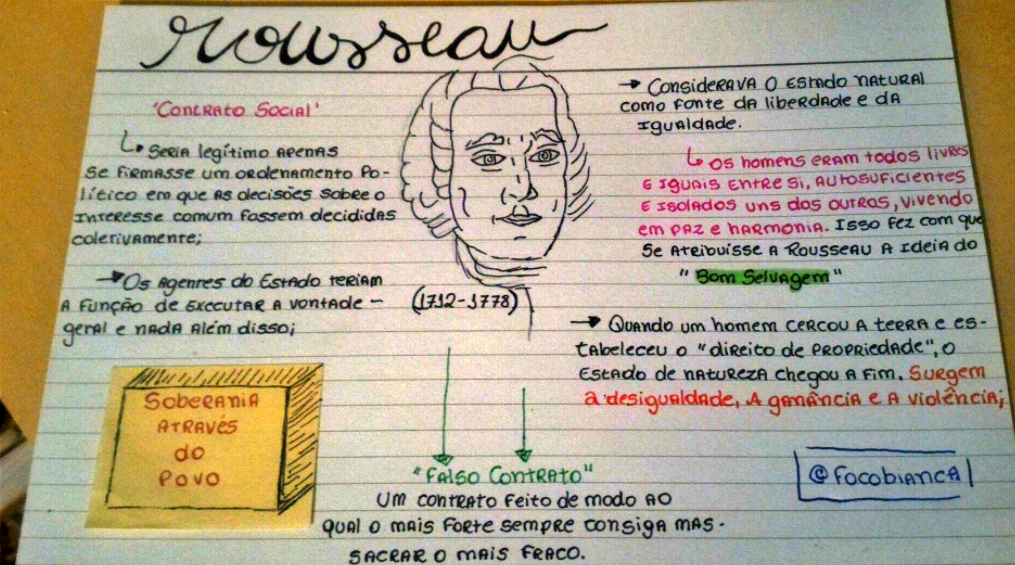 Rousseau
'Contrato Social'
Seria legítimo apenas
se firmasse um ordenamento po-
lítico em que as decisões sobre o
interesse comum fossem decididas
coletivamente;
Os agentes do Estado teriam
a função de executar a vontade
geral e nada além disso;
Soberania
através
do
povo
(1712-1778)
"Falso Contrato"
Um contrato feito de modo ao
qual o mais forte sempre consiga mas-
sacrar o mais fraco.
Considerava o estado natural
como fonte da liberdade e da
igualdade.
Os homens eram todos livres
e iguais entre si, autosuficientes
e isolados uns dos outros, vivendo
em paz e harmonia. Isso fez com que
se atribuísse a Rousseau a ideia do
"Bom Selvagem"
Quando um homem cercou a terra e es-
tabeleceu o "direito de propriedade", o
estado de natureza chegou a fim. Surgem
a desigualdade, a ganância e a violência;
@focobianca